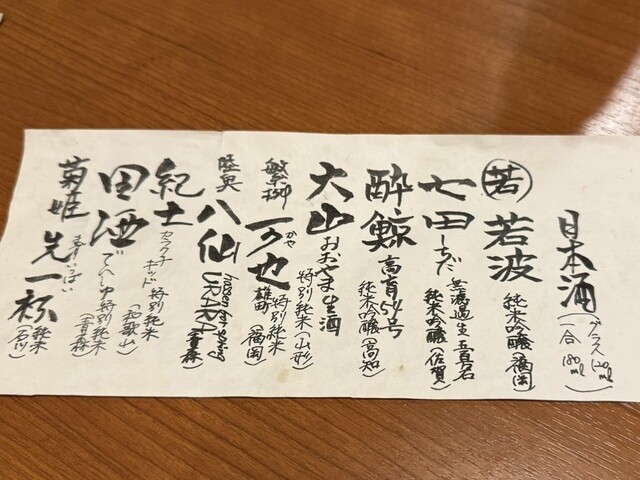 日本酒
グラス120ml
一合180ml
若 若波
純米吟醸(福岡)
七田 しちだ
無濾過生 五百万石
純米吟醸(佐賀)
酔鯨 高育54号
純米吟醸(高知)
大山 おおやま 生酒
特別純米(山形)
繁桝
かや
特別純米
雄町(福岡)
陸奥
八仙
URARA(青森)
紀土
カラクチキッド 特別純米
(和歌山)
田酒 でんしゅ 特別純米
(青森)
菊姫
先一杯
まずいっぱい
純米
(石川)